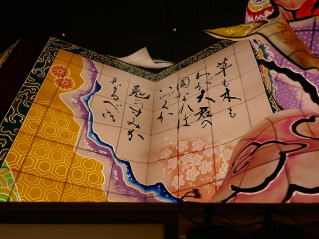 草も木も
わが大君の
国なれば
いづくか
鬼の
すみか
なるべき